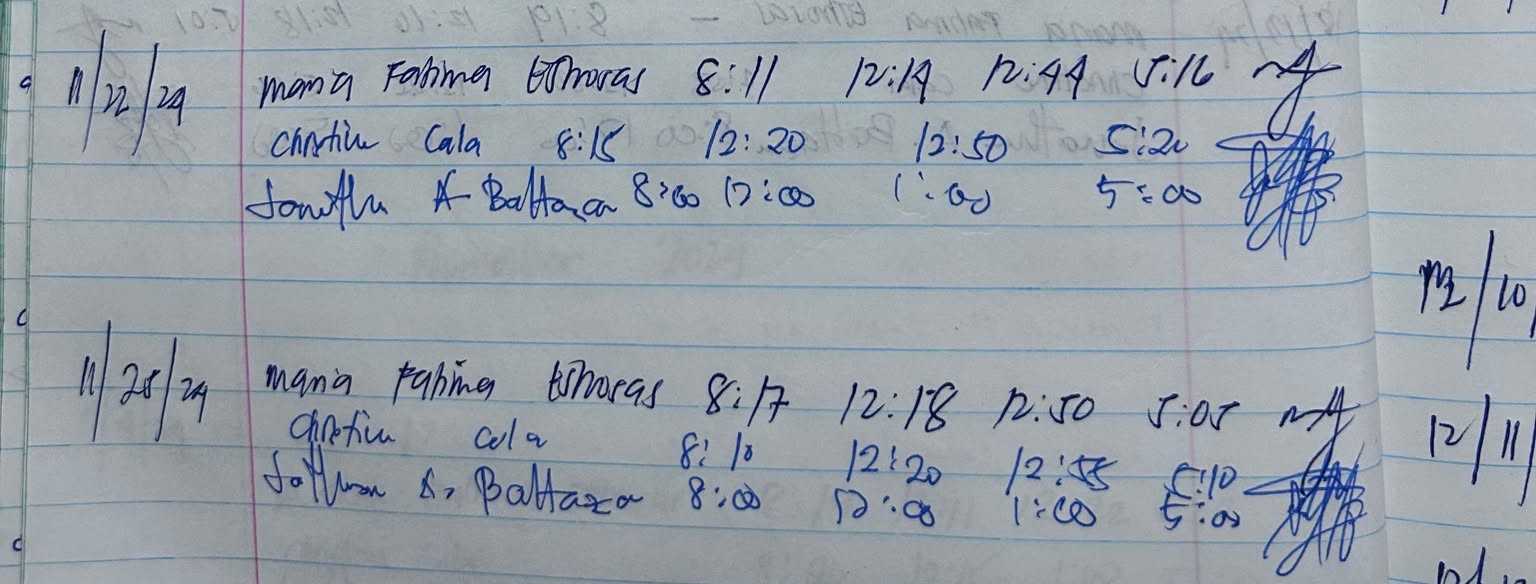 11/22/24 Maria Fatima 8:11 12:14 12:44 5:16
Christin Cala 8:15 12:20 12:50 5:20
A Baltaza 8:00 12:00 1:00 5:00
11/25/24 Maria Fatima 8:17 12:18 12:50 5:05
Christin Cala 8:10 12:20 12:55 5:10
A. Baltaza 8:00 12:00 1:00 5:00
12/10
12/11